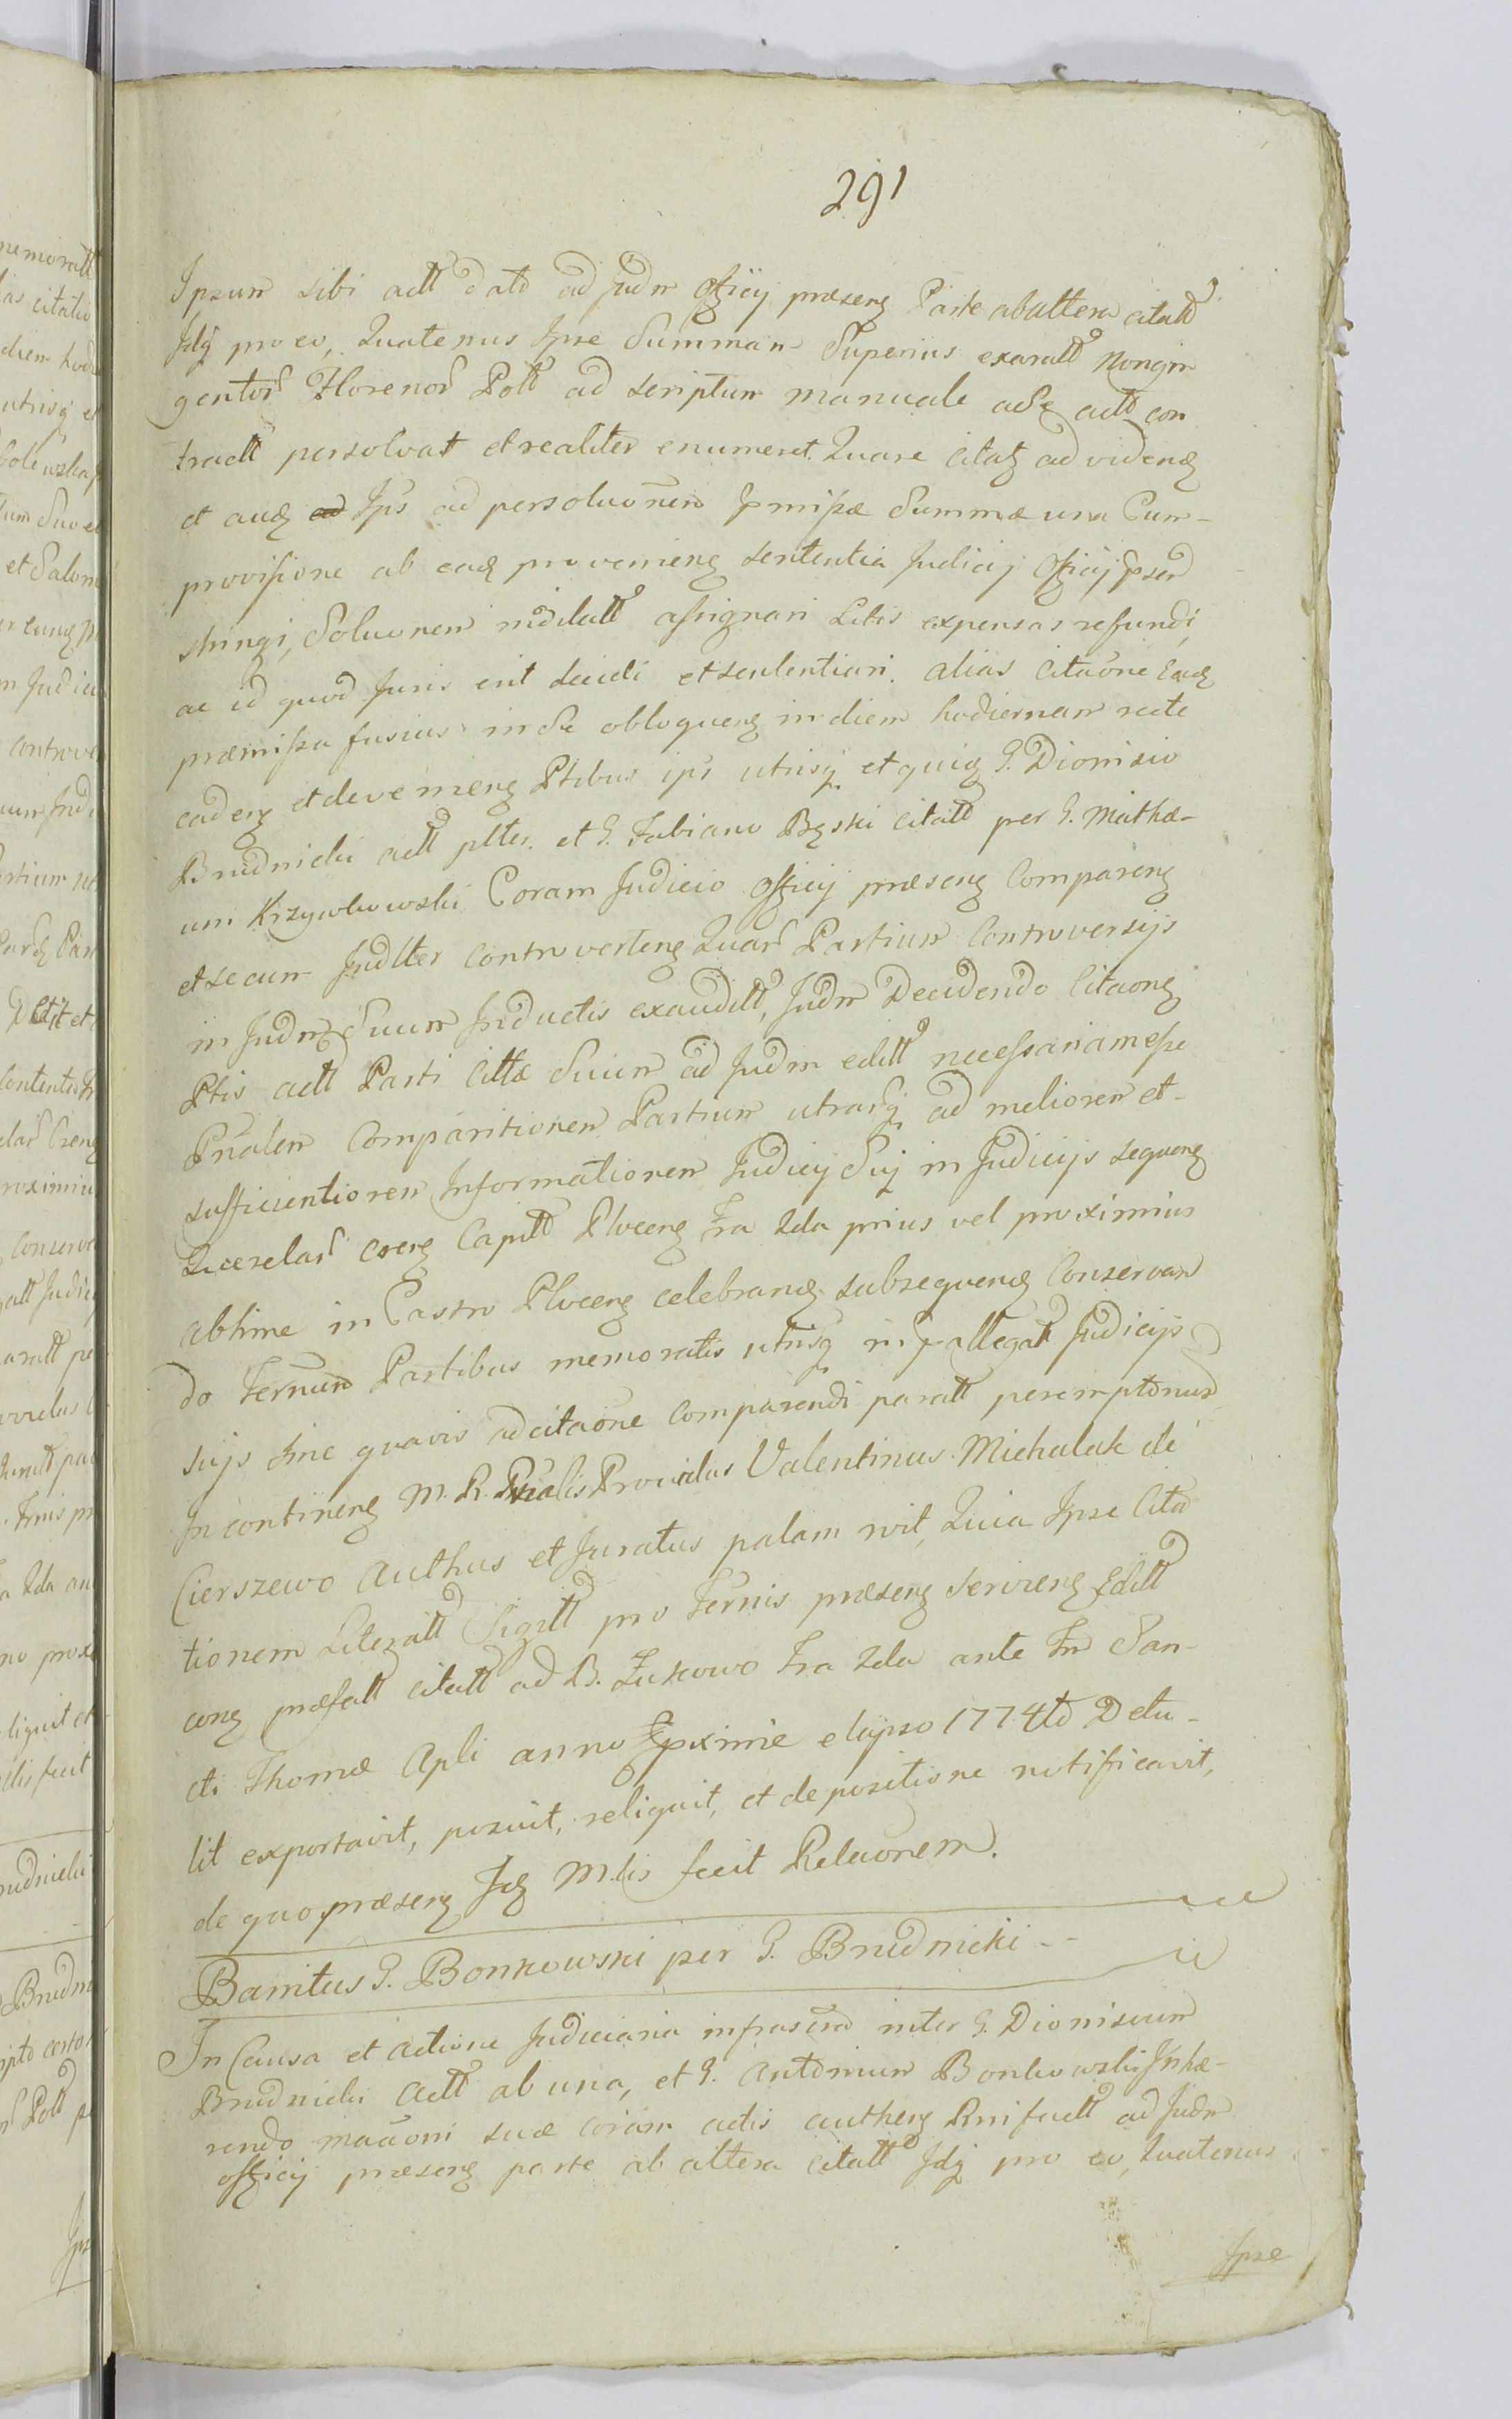 291
Ipsum sibi actt dato ad Judm Officij præseng Parte ab altera citatt
Idq pro eo, Quatenus Ipse Summam Superius exaratt Nongin
gentor Florenor Poll ad scriptum manuale ad Se actt con
tractt persolvat et realiter enumeret. Quare citatg ad videng
et aug Ips ad persoluonem pmissæ Summæ una Cum-
provisione ab eadg provenieng sententia Judicij Officij pseng
stringi, Soluonem indilatt assignari Litis expensas refundi,
ac id quod Juris erit decidi et sententiari. alias Citaone Eadg
præmissa fusius in Se obloqueng in diem hodiernam recte
cadeng et devenieng Ptibus ips utrisq et quig G. Dionisio
Brudnicki actt plter. et G. Fabiano Bęski citatt per G. Mathæ-
um Krzywkowski Coram Judicio Officij præseng Compareng
et secum Judlter controverteng Quar Partium Controversijs
in Judm Suum Inductis exauditt, Judm Decidendo Citaong
Ptis actt Parti Cittæ Suum ad Judm editt necessariam esse
Pnalem Comparitionem Partium utrarq ad meliorem et-
sufficientiorem Informationem Judicij Suj in Judicijs sequeng
Querelar coreng Capitt Ploceng Fra 2da prius vel proximius
abhinc in Castro Ploceng celebrang subsequeng Conservan
do Fernum Partibus memoratis utrisq in pallegatt Judicijs
suijs sine quavis adcitaone Comparendi paratt peremptorium
In contineng M. R. Pnalis Providus Valentinus Michalak de
Cierszewo Authus et Juratus palam rvit, Quia Ipse Cita
tionem Literatt Sigitt pro Fernis præseng Servieng Editt
cong præfatt citatt ad B. Zukowo Fra 2da ante Fm San-
cti Thomæ Apli anno pxime elapso 1774to Detu-
lit exportavit, posuit, reliquit, et de positione notificavit,
de quo præseng Idg M.lis fecit Relaonem.
Banitus G. Bonkowski per G. Brudnicki - -
In Causa et actione Judiciaria infrascra inter G. Dionisium
Brudnicki Actt ab una, et G. Antonium Bonkowski Inhæ-
rendo maaoni suæ coram actis autheng Rnifactt ad Judm
officij præseng parte ab altera citatt Idq pro eo, Quatenus
Ipse